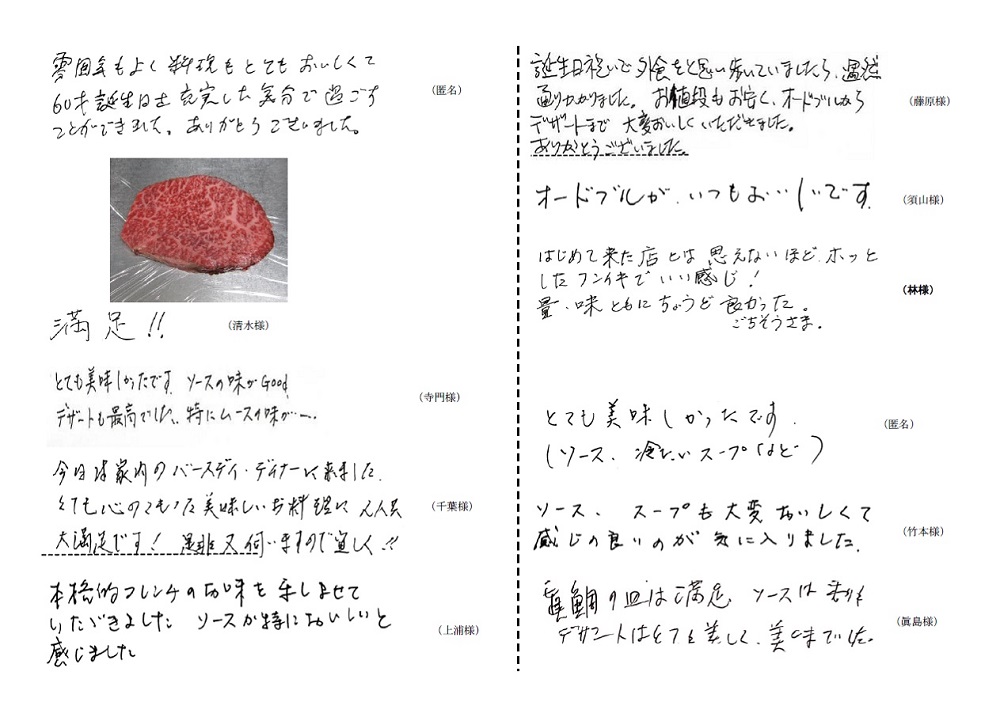 雰囲気もよく料理もとてもおいしくて
60才誕生日を充実した気分で過ごす
ことができました。ありがとうございました。
(匿名)
満足!!
(清水様)
とても美味しかったです。ソースの味がGood
デザートも最高でした。特にムースの味が…。
(寺門様)
今日は家内のバースディ・ディナーに来ました。
とても心のこもった美味しいお料理に 2人共
大満足です! 是非又伺いますので宜しく!!
(千葉様)
本格的フレンチのお味を楽しませて
いただきました ソースが特においしいと
感じました
(上浦様)
誕生日祝いで外食をと思い歩いていましたら、偶然
通りかかりました。お値段もお安く、オードブルから
デザートまで 大変おいしくいただけました。
ありがとうございました。
(藤原様)
オードブルが、いつもおいしいです。
(須山様)
はじめて来た店とは思えないほど、ホッと
したフンイキでいい感じ!
量・味ともにちょうど良かった。
ごちそうさま。
(林様)
とても美味しかったです。
(ソース、冷たいスープなど)
(匿名)
ソース、スープも大変おいしくて
感じの良いのが気に入りました。
(竹本様)
真鯛の皿は満足 ソースは
デザートはとても美しく、美味でした。
(眞島様)